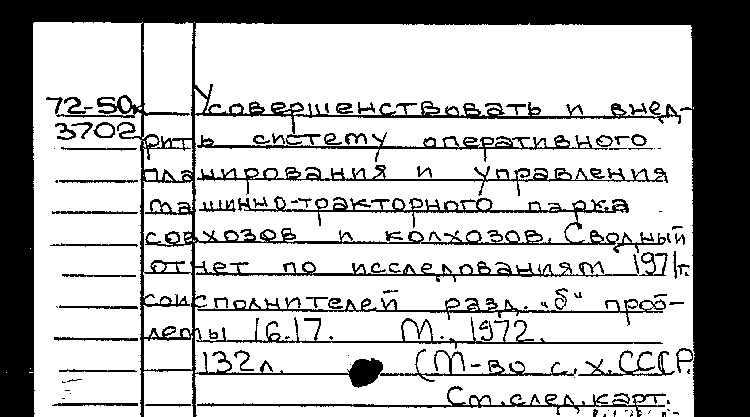 72-50к
3702
Усовершенствовать и внед-
рить систему оперативного
планирования и управления
машинно-тракторного парка
совхозов и колхозов. Сводный
отчет по исследованиям 1971г.
соисполнителей разд. "б" проб-
лемы 16.17. М., 1972.
132л. (М-во с.х. СССР.
См. след. карт.